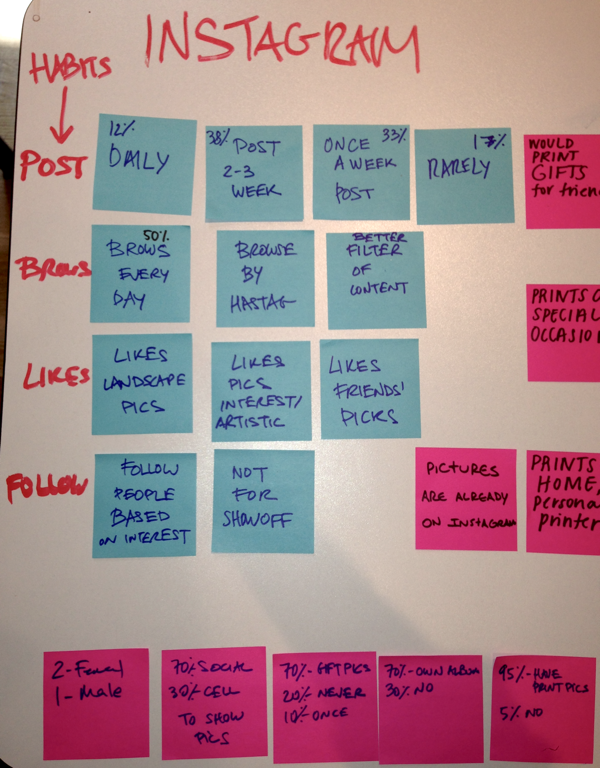 INSTAGRAM
HABITS
POST
12%
DAILY
38% POST
2-3
WEEK
ONCE 33%
A WEEK
POST
17%
RARELY
WOULD
PRINT
GIFTS
for frien
BROWS
50%
BROWS
EVERY
DAY
BROWSE
BY
HASTAG
BETTER
FILTER
OF
CONTENT
PRINTS O
SPECIAL
OCCASIO
LIKES
LIKES
LANDSCAPE
PICS
LIKES
PICS
INTEREST/
ARTISTIC
LIKES
FRIENDS'
PICKS
FOLLOW
FOLLOW
PEOPLE
BASED
ON INTEREST
NOT
FOR
SHOWOFF
PICTURES
ARE ALREADY
ON INSTAGRAM
PRINTS
HOME,
persona
printer
2-
1- Male
70% SOCIAL
30% CELL
TO SHOW
PICS
70%- GIFT PICS
20% NEVER
10%- ONCE
70%- OWN ALBUM
30% NO
95%- HAVE
PRINT PICS
5% NO